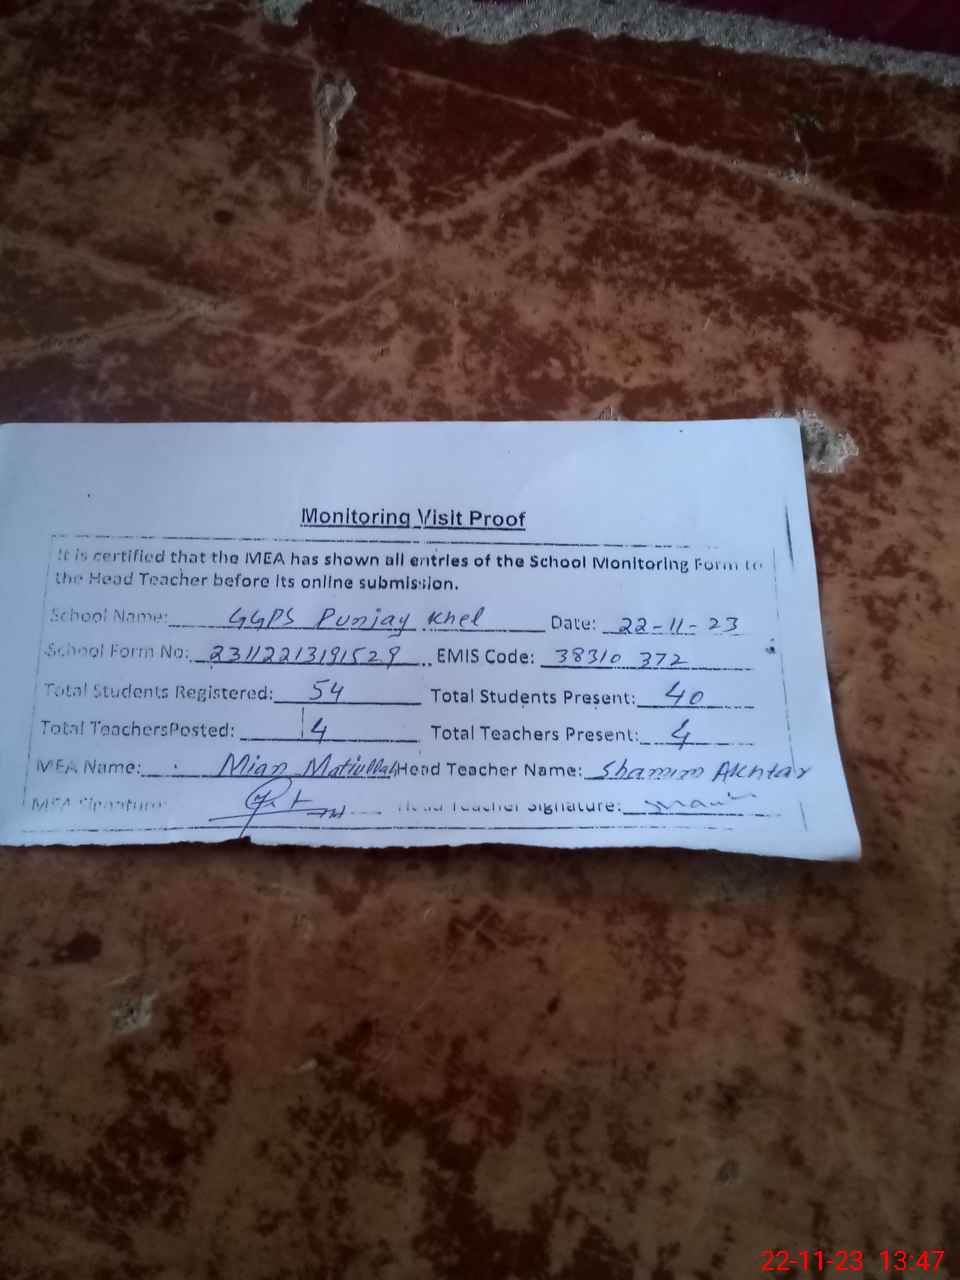 Monitoring Visit Proof
It is certified that the MEA has shown all entries of the School Monitoring Form to
the Head Teacher before its online submission.
School Name: GGPS Punjay Khel Date: 22-11-23
School Form No: 23112213191529 EMIS Code: 38310 372
Total Students Registered: 54 Total Students Present: 40
Total TeachersPosted: 4 Total Teachers Present: 4
MEA Name: Mian Matiullah Head Teacher Name: Shamim Akhtar
MEA Signature: Head Teacher Signature:
22-11-23 13:47